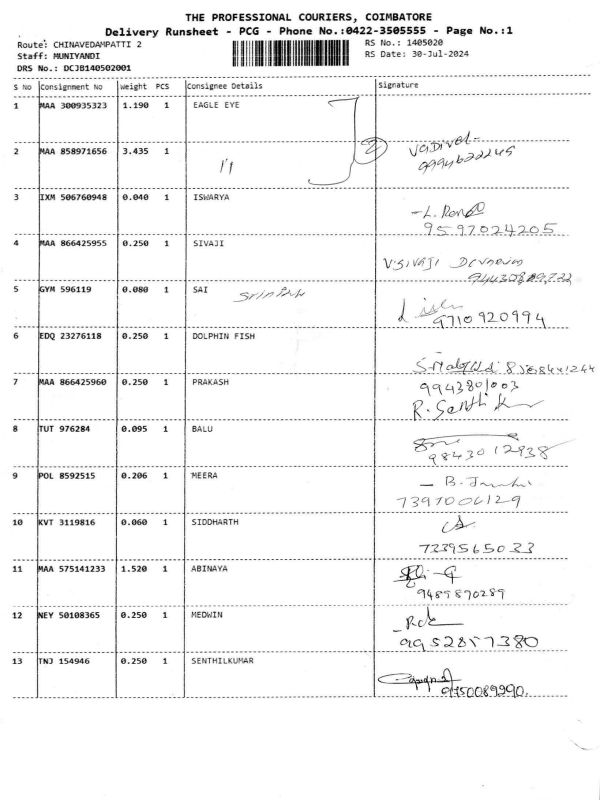 THE PROFESSIONAL COURIERS, COIMBATORE
Delivery Runsheet - PCG - Phone No.:0422-3505555 - Page No.:1
Route: CHINAVEDAMPATTI 2
RS No.: 1405020
Staff: MUNIYANDI
RS Date: 30-Jul-2024
DRS No.: DCJB140502001
S No Consignment No Weight PCS Consignee Details Signature
1 MAA 300935323 1.190 1 EAGLE EYE
2 MAA 858971656 3.435 1 11 2 Vadivel
3 IXM 506760948 0.040 1 ISWARYA
9597024205
4 MAA 866425955 0.250 1 SIVAJI
V SIVAJI
5 GYM 596119 0.080 1 SAI
9710920994
6 EDQ 23276118 0.250 1 DOLPHIN FISH
7 MAA 866425960 0.250 1 PRAKASH 9943801003
8 TUT 976284 0.095 1 BALU
9843012938
9 POL 8592515 0.206 1 MEERA
7397006129
10 KVT 3119816 0.060 1 SIDDHARTH
7339565033
11 MAA 575141233 1.520 1 ABINAYA
9489870289
12 NEY 50108365 0.250 1 MEDWIN
9952857380
13 TNJ 154946 0.250 1 SENTHILKUMAR
9750089990